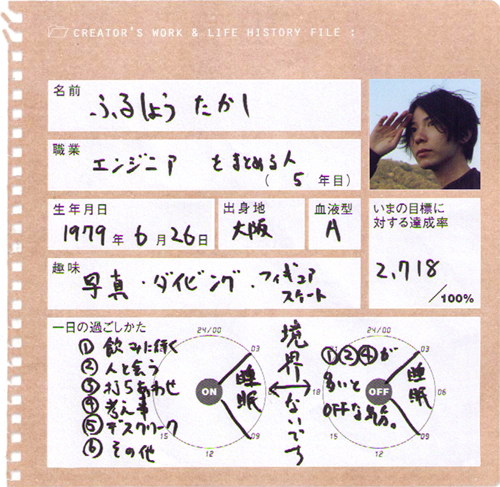 CREATOR'S WORK & LIFE HISTORY FILE :
名前
ふるしょう たかし
職業
エンジニア をまとめる人
( 5 年目)
生年月日
1979年 6月26日
出身地
大阪
血液型
A
いまの目標に
対する達成率
2,718
/100%
趣味
写真・ダイビング・フィギュア
スケート
一日の過ごしかた
① 飲みに行く
② 人と会う
③ 打ちあわせ
④ 考え事
⑤ デスクワーク
⑥ その他
24/00
03
09
12
15
ON
睡眠
境界ないです
24/00
03
06
09
12
15
18
OFF
睡眠
①②④が
多いと
OFFな気分。